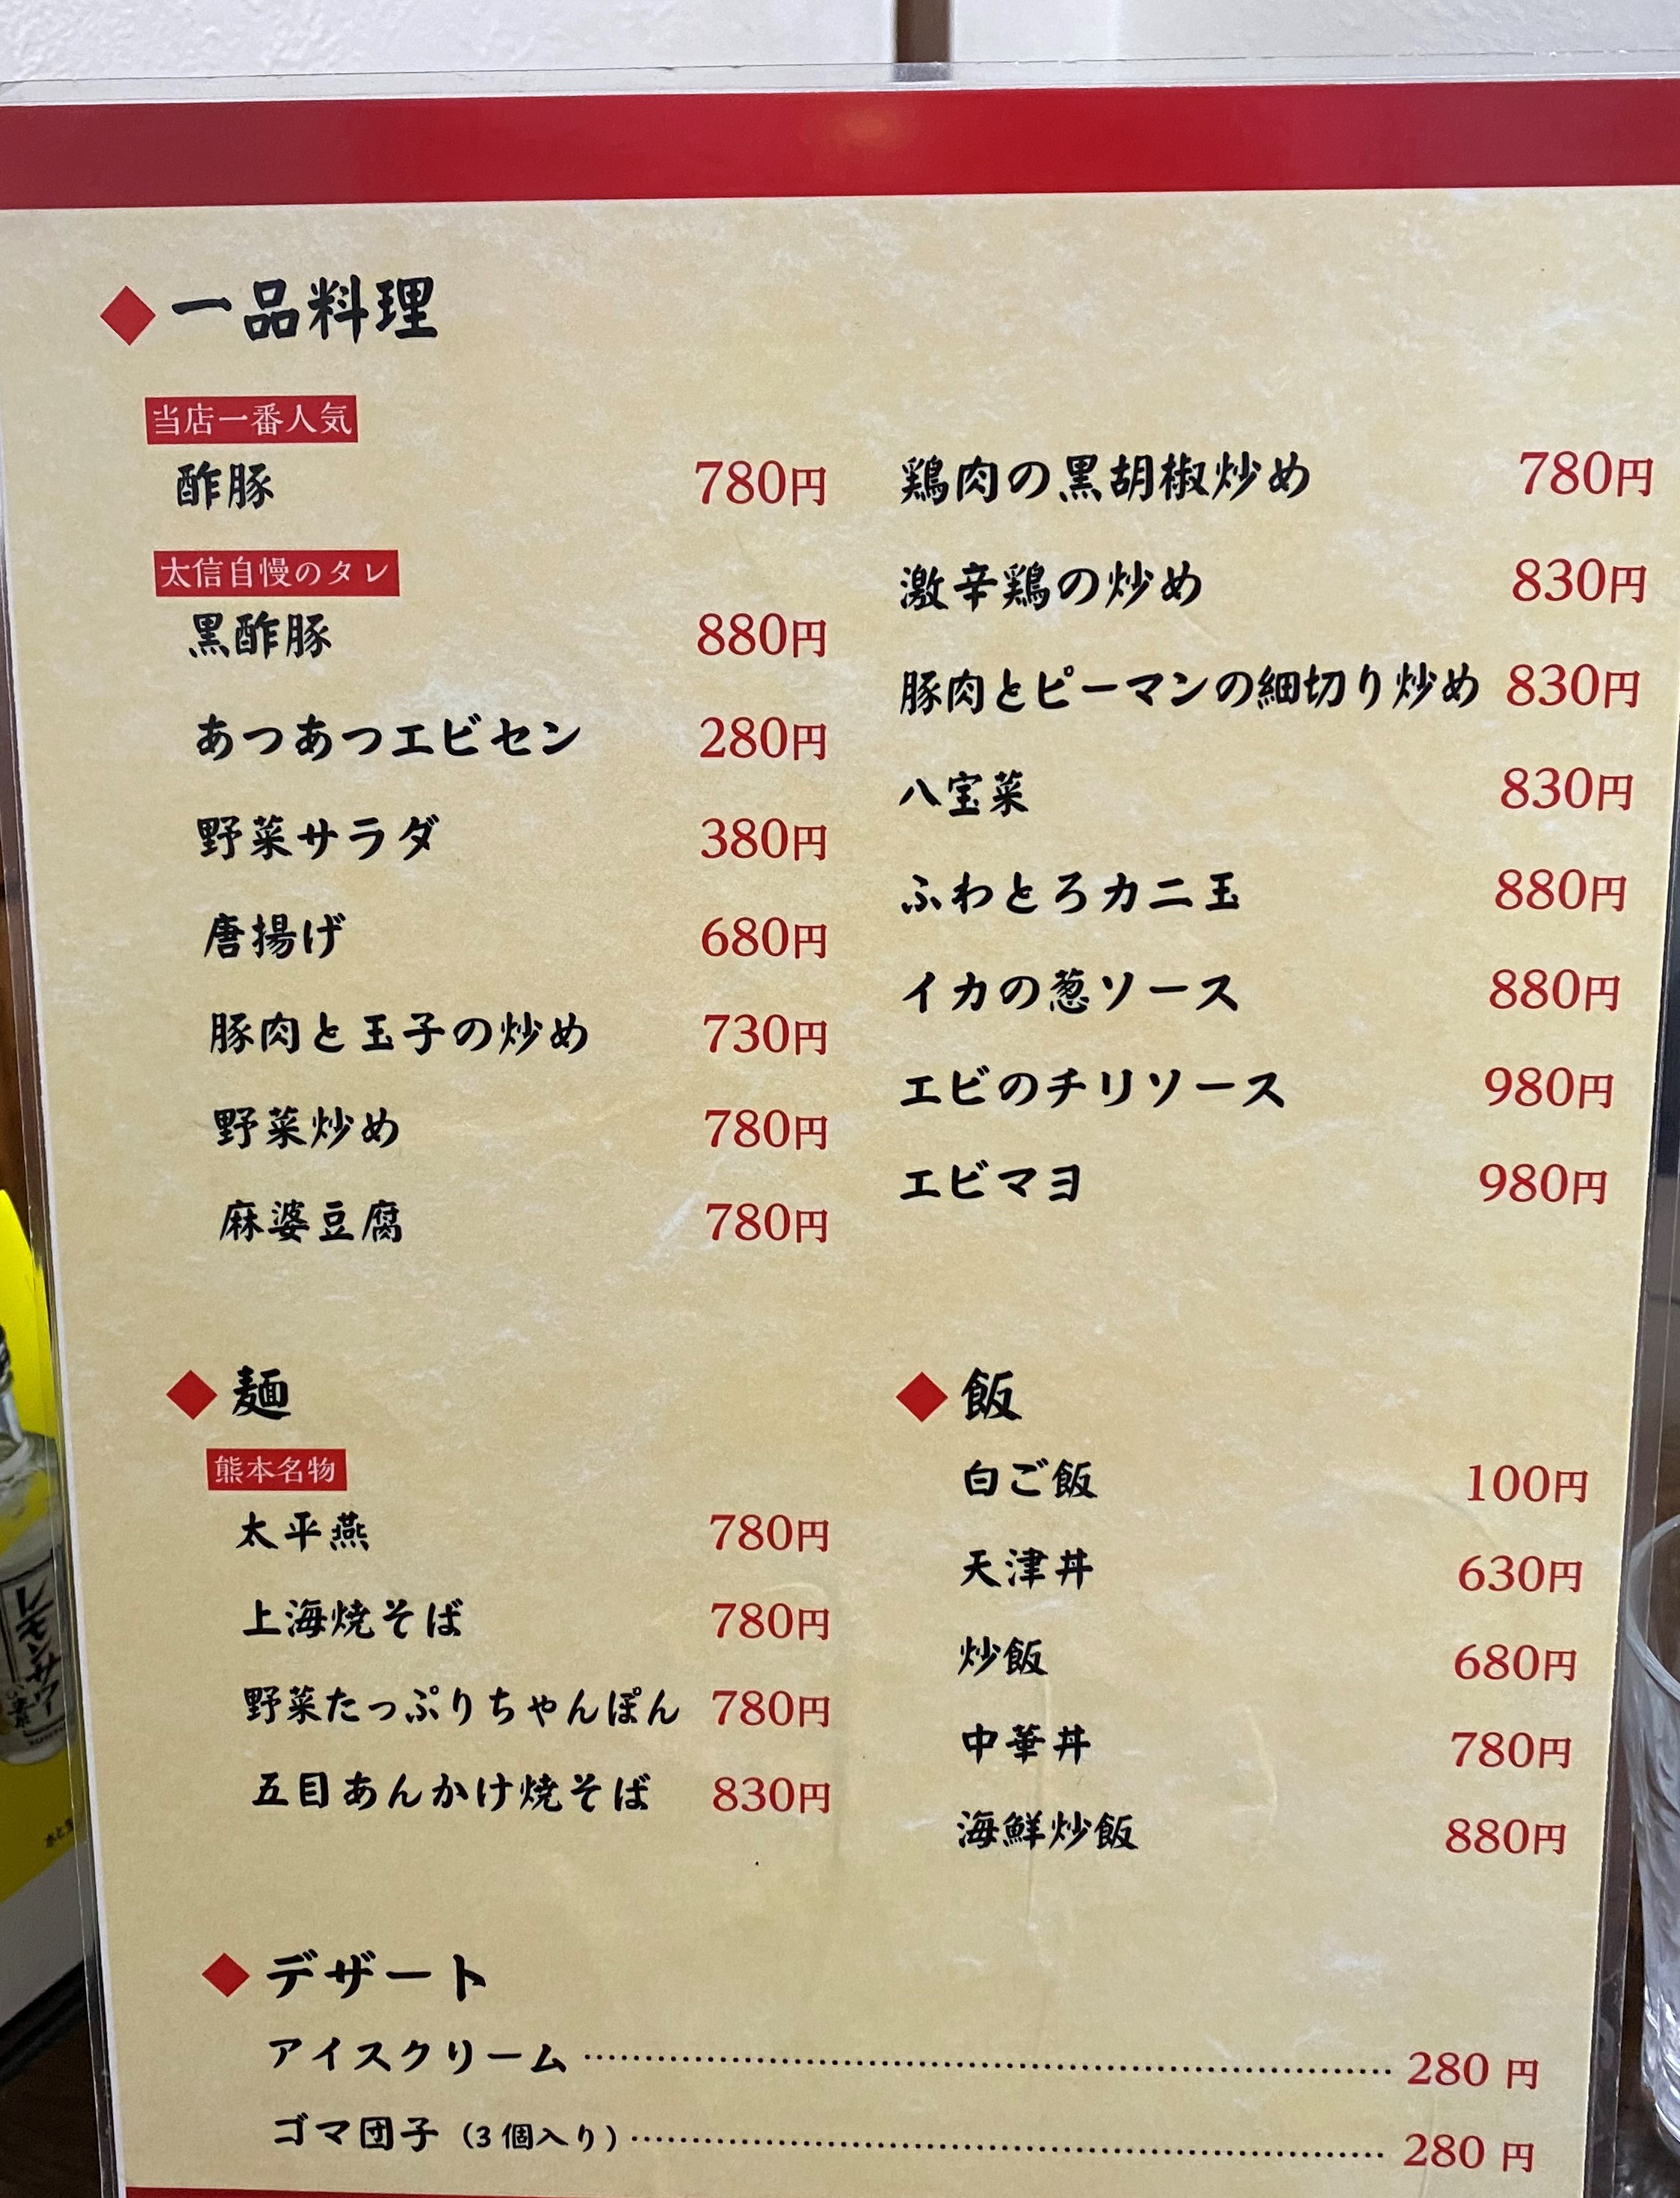 一品料理
当店一番人気
酢豚 780円
太信自慢のタレ
黒酢豚 880円
あつあつエビセン 280円
野菜サラダ 380円
唐揚げ 680円
豚肉と玉子の炒め 730円
野菜炒め 780円
麻婆豆腐 780円
鶏肉の黒胡椒炒め 780円
激辛鶏の炒め 830円
豚肉とピーマンの細切り炒め 830円
八宝菜 830円
ふわとろカニ玉 880円
イカの葱ソース 880円
エビのチリソース 980円
エビマヨ 980円
麺
熊本名物
太平燕 780円
上海焼そば 780円
野菜たっぷりちゃんぽん 780円
五目あんかけ焼そば 830円
飯
白ご飯 100円
天津丼 630円
炒飯 680円
中華丼 780円
海鮮炒飯 880円
デザート
アイスクリーム 280 円
ゴマ団子（3 個入り） 280 円
レモンサワー